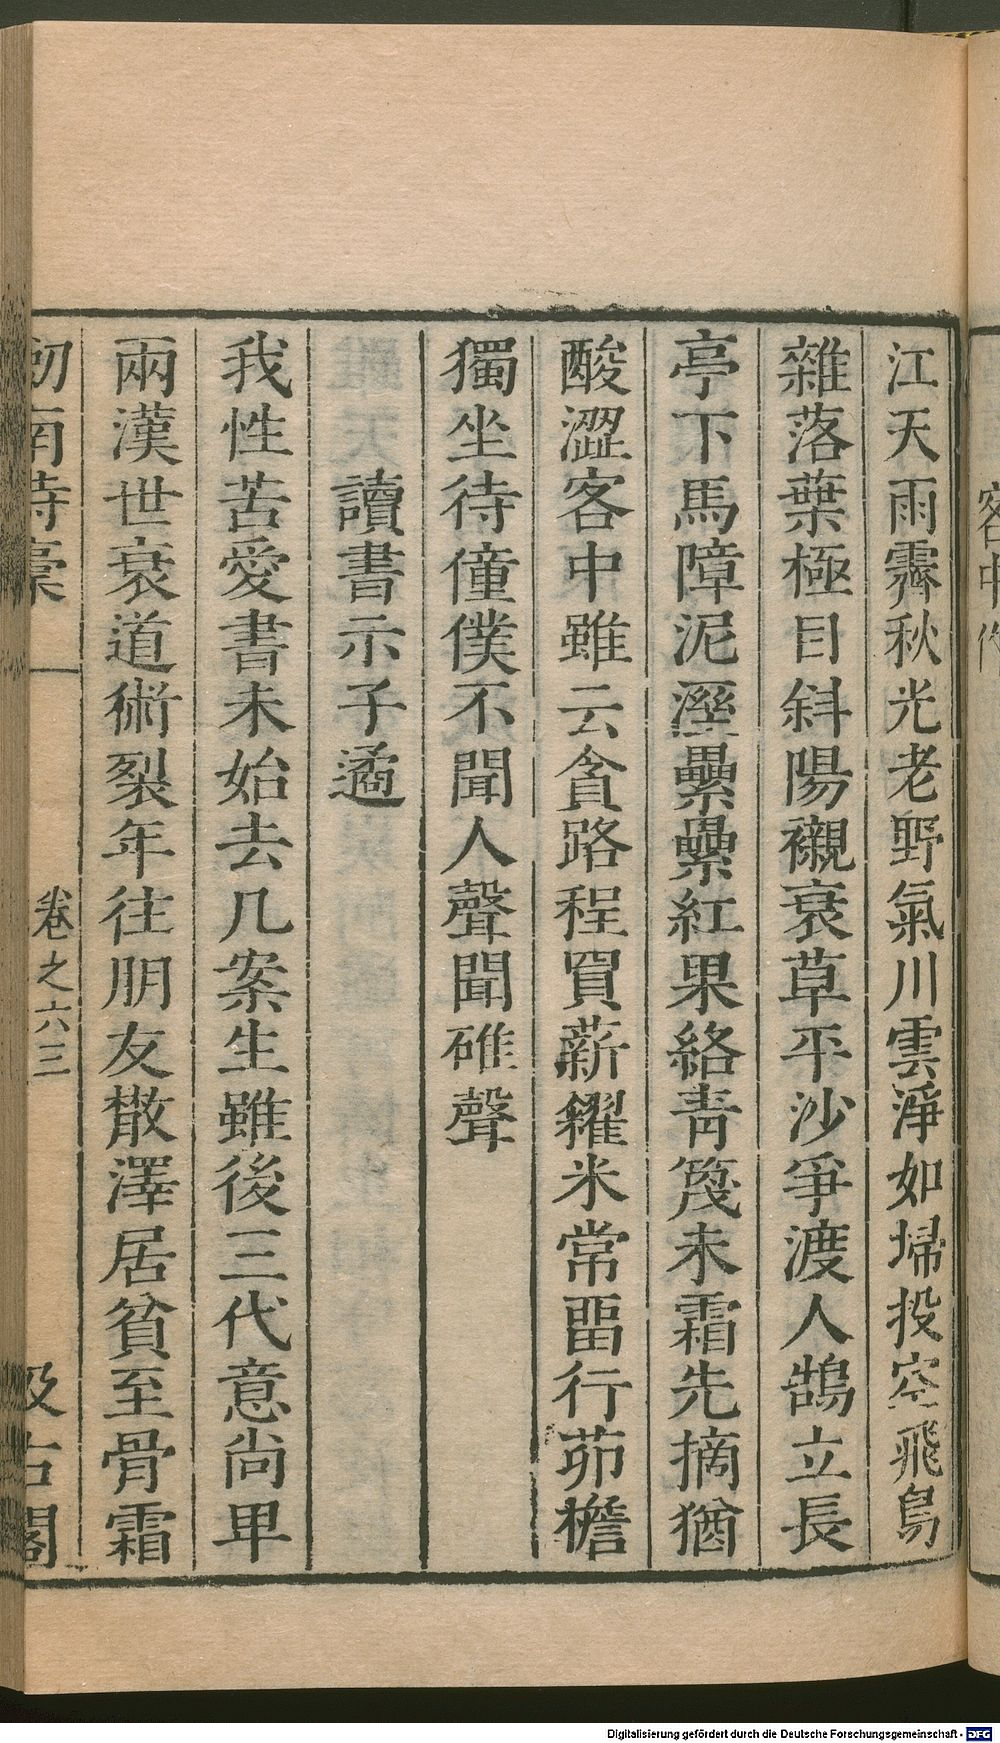 客中作
江天雨霽秋光老野氣川雲淨如埽投空飛鳥
雜落葉極目斜陽襯衰草平沙爭渡人鵠立長
亭下馬障泥溼纍纍紅果絡青篾未霜先摘猶
酸澀客中雖云貪路程買薪糴米常畱行茆檐
獨坐待僮僕不聞人聲聞碓聲
讀書示子遹
我性苦愛書未始去几案生雖後三代意尚卑
兩漢世衰道術裂年往朋友散澤居貧至骨霜
劒南詩稾
卷之六
三
汲古閣
Digitalisierung gefördert durch die Deutsche Forschungsgemeinschaft - DFG